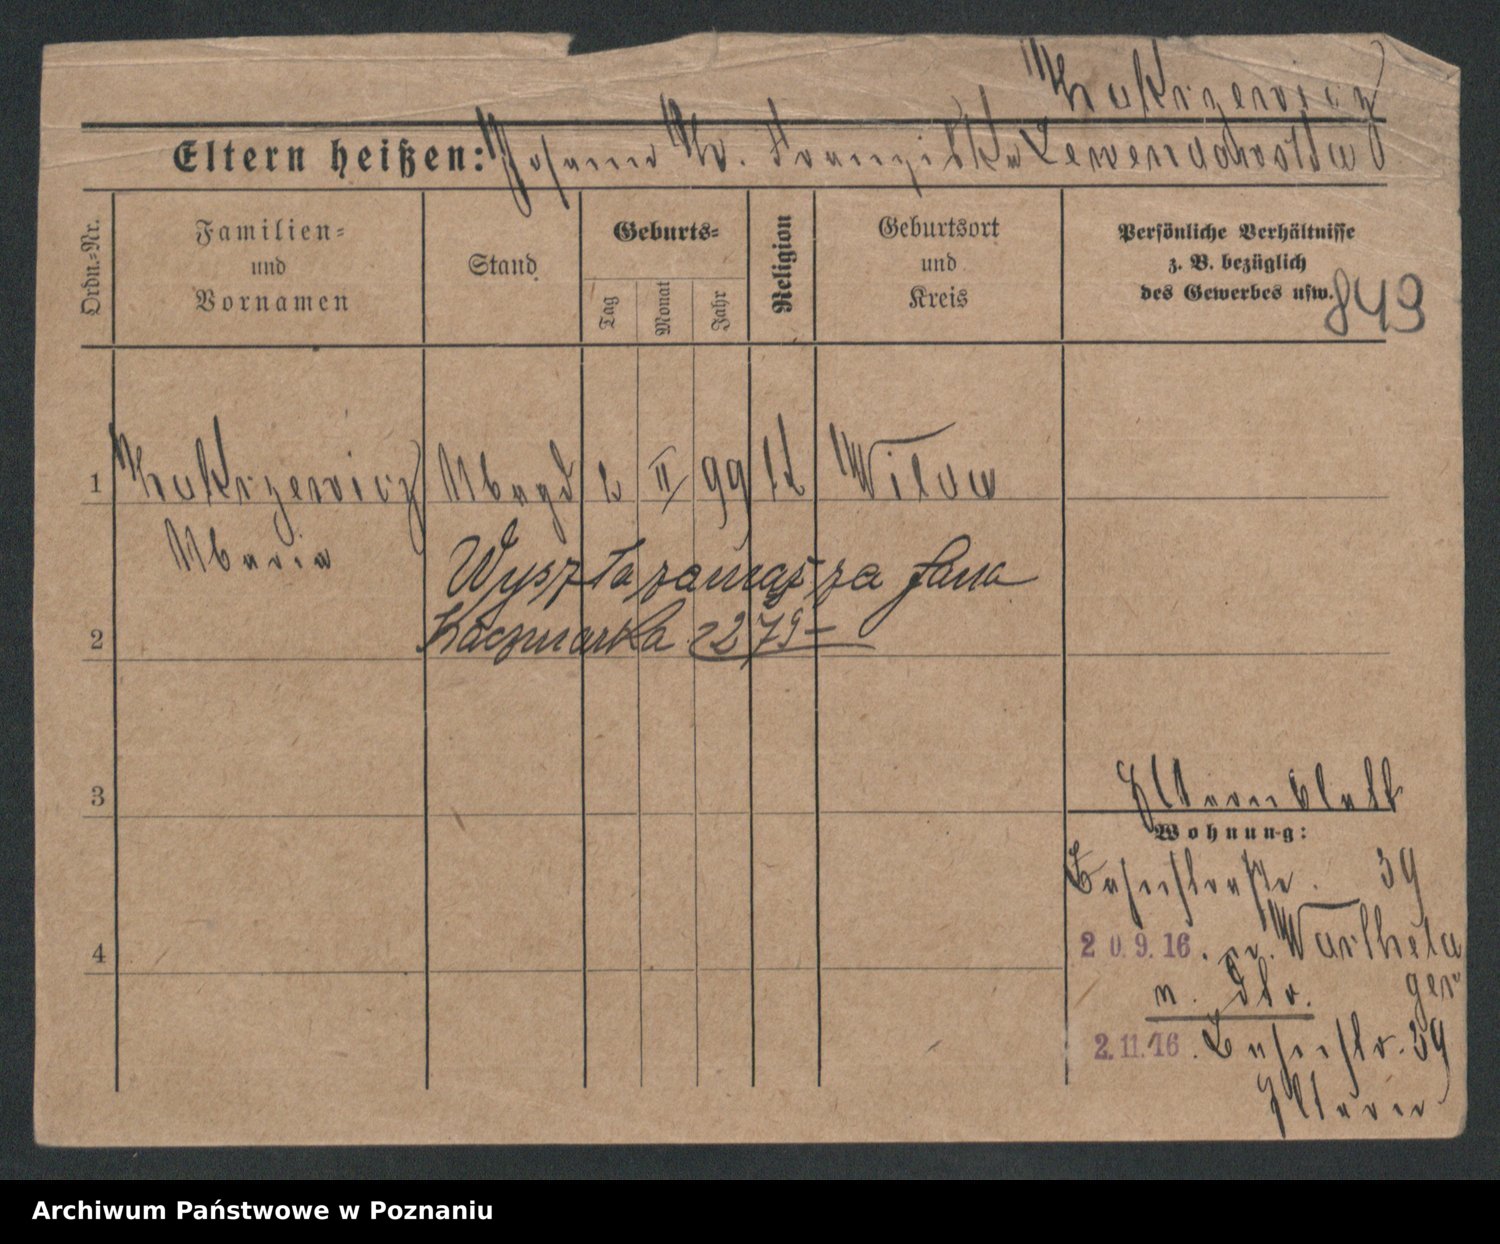 Mukrzewicz
Eltern heißen: Johann M. Franziska Lewendowska
Ordn.-Nr.
Familien-
und
Vornamen
Stand
Geburts-
Tag
Monat
Jahr
Religion
Geburtsort
und
Kreis
Persönliche Verhältnisse
z. B. bezüglich
des Gewerbes usw.
849
1 Mukrzewicz Magd 2 II 99 k Wilda
Maria
Wyszła zamąż za Jana
Kaczmarka 279
2
3
4
Elternblatt
Wohnung:
Busestraße. 39
20.9.16. Warthela
ger
n. Abr.
2.11.16. Busestr. 39
Eltern
Archiwum Państwowe w Poznaniu